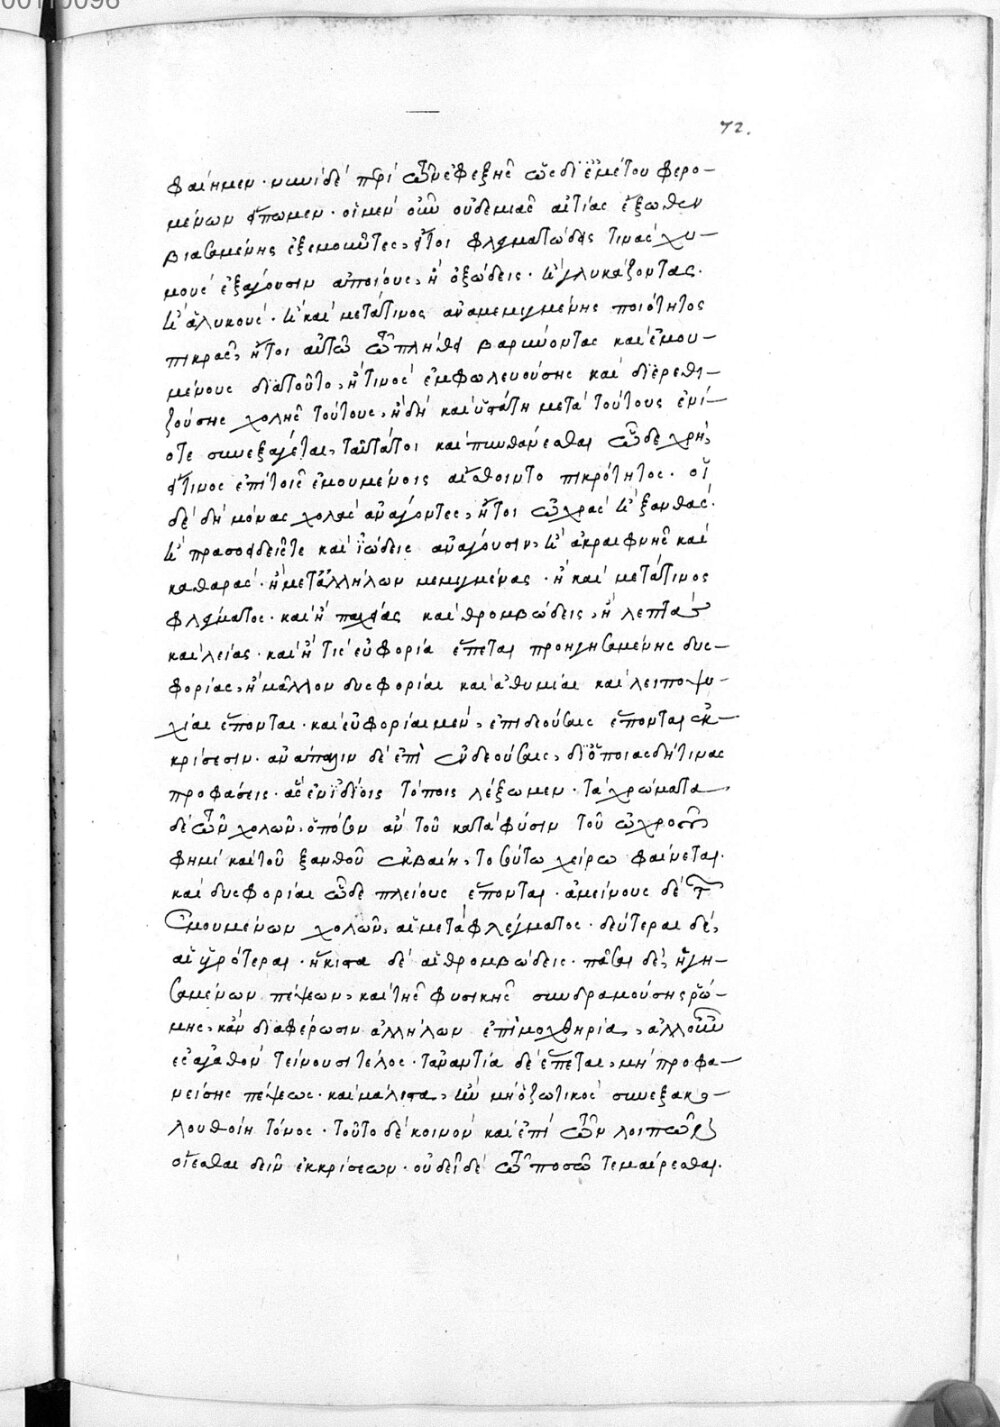 72.
φαίημεν· νυνὶ δὲ περὶ τῶν ἐφεξῆς ὡς δι' ἐμέτου φερο-
μένων εἴπωμεν· οἱ μὲν οὖν οὐδεμιᾶς αἰτίας ἔξωθεν
βιασαμένης ἐξεμοῦντες, ἤτοι φλεγματώδεις τινὰς χυ-
μοὺς ἐξάγουσιν ἀποίους, ἢ ὀξώδεις· ἢ γλυκάζοντας·
ἢ ἁλυκούς· ἢ καὶ μετά τινος ἀναμεμιγμένης ποιότητος
πικρᾶς, ἤτοι αὐτῷ τῷ πλήθει βαρύνοντας καὶ ἐμου-
μένους διὰ τοῦτο, ἤ τινος ἐμφωλευούσης καὶ διερεθι-
ζούσης χολῆς τούτους, ἤδη καὶ ὑφ' ἅτη μετὰ τούτους ἐνί-
οτε συνεξάγεται, ταῦτά τοι καὶ πυνθάνεσθαι τῶδε χρὴ,
εἴ τινος ἐπὶ τοῖς ἐμουμένοις αἴσθοιντο πικρότητος· οἱ
δὲ δὴ μόνας χολὰς ἀνάγοντες, ἤτοι ὠχρὰς ἢ ξανθάς·
ἢ πρασοειδεῖς τε καὶ ἰώδεις ἀνάγουσιν, ἢ ἀκραιφνεῖς καὶ
καθαράς· ἢ μετ' ἀλλήλων μεμιγμένας· ἢ καὶ μετά τινος
φλέγματος· καὶ ἢ παχείας καὶ θρομβώδεις, ἢ λεπτάς
καὶ λείας· καὶ ἤ τις εὐφορία ἕπεται προηγησαμένης δυσ-
φορίας, ἢ μᾶλλον δυσφορίαι καὶ ἀθυμίαι καὶ λειποψυ-
χίαι ἕπονται· καὶ εὐφορίαι μέν, ἐπὶ δεούσαις ἕπονται ἐκ-
κρίσεσιν· ἀνάπαλιν δὲ ἐπὶ ἐνδεούσαις, δι' ὁποίας δήτινας
προφάσεις· ἃς ἐν ἰδίοις τόποις λέξωμεν· τὰ χρώματα
δὲ τῶν χολῶν, ὁπόσον ἂν τοῦ κατὰ φύσιν τοῦ ὠχροῦ
φημὶ καὶ τοῦ ξανθοῦ ἐκβαίη, τοσούτω χείρω φαίνεται·
καὶ δυσφορίαι τῶδε πλείους ἕπονται· ἀμείνους δὲ τῶν
ἐμουμένων χολῶν, αἱ μετὰ φλέγματος· δεύτεραι δέ,
αἱ ὑγρότεραι· ἥκιστα δὲ αἱ θρομβώδεις· πᾶσαι δέ, ἡγη-
σαμένων πέψεων, καὶ τῆς φυσικῆς συνδραμούσης ῥώ-
μης, κἂν διαφέρωσιν ἀλλήλων ἐπὶ μοχθηρία, ἀλλ' οὖν
ἐς ἀγαθὸν τείνουσι τέλος· τἀναντία δὲ ἕπεται, μὴ προφα-
νείσης πέψεως· καὶ μάλιστα, ἢν μὴ ὁ ζωτικὸς συνεξακο-
λουθοίη τόνος· τοῦτο δὲ κοινὸν καὶ ἐπὶ τῶν λοιπῶν
οἴεσθαι δεῖν ἐκκρίσεων· οὐ δεῖ δὲ τῷ ποσῷ τεκμαίρεσθαι·